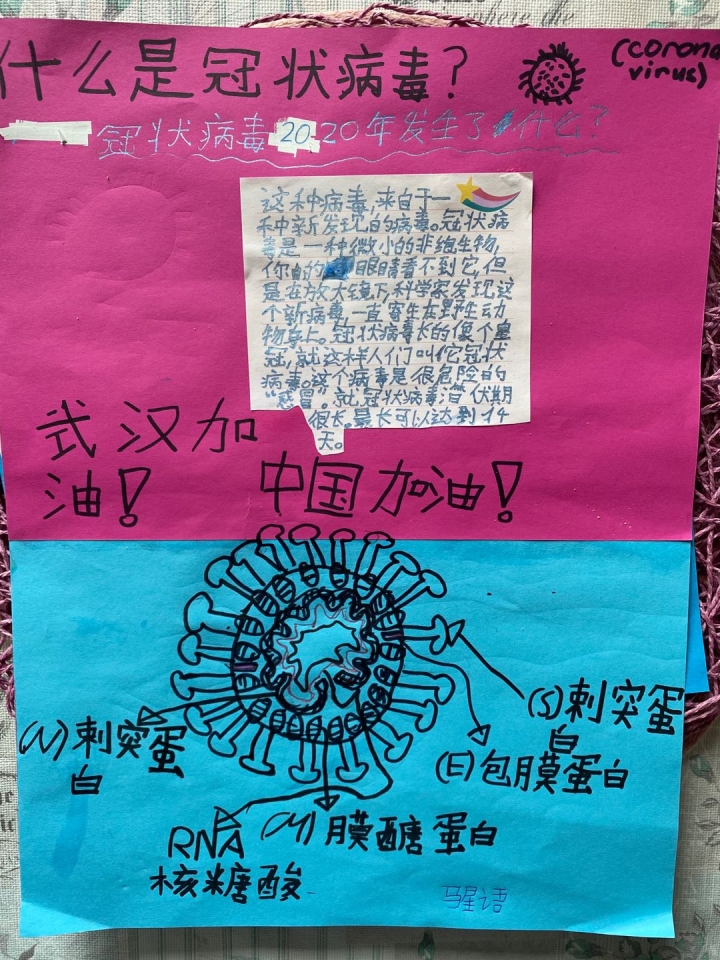 什么是冠状病毒?
(corona
virus)
冠状病毒2020年发生了什么?
这种病毒,来自于一
种新发现的病毒。冠状病
毒是一种微小的非细生物,
你的眼睛看不到它,但
是在放大镜下,科学家发现这
个新病毒一直寄生在野生动
物身上。冠状病毒长的像个皇
冠,就这样人们叫它冠状
病毒。这个病毒是很危险的
“感冒”。就冠状病毒潜伏期
很长。最长可以达到14
天。
武汉加
油!
中国加油!
(S)刺突蛋
白
(N)刺突蛋
白
(E)包膜蛋白
(M)膜醣蛋白
RNA
核糖酸
马星语